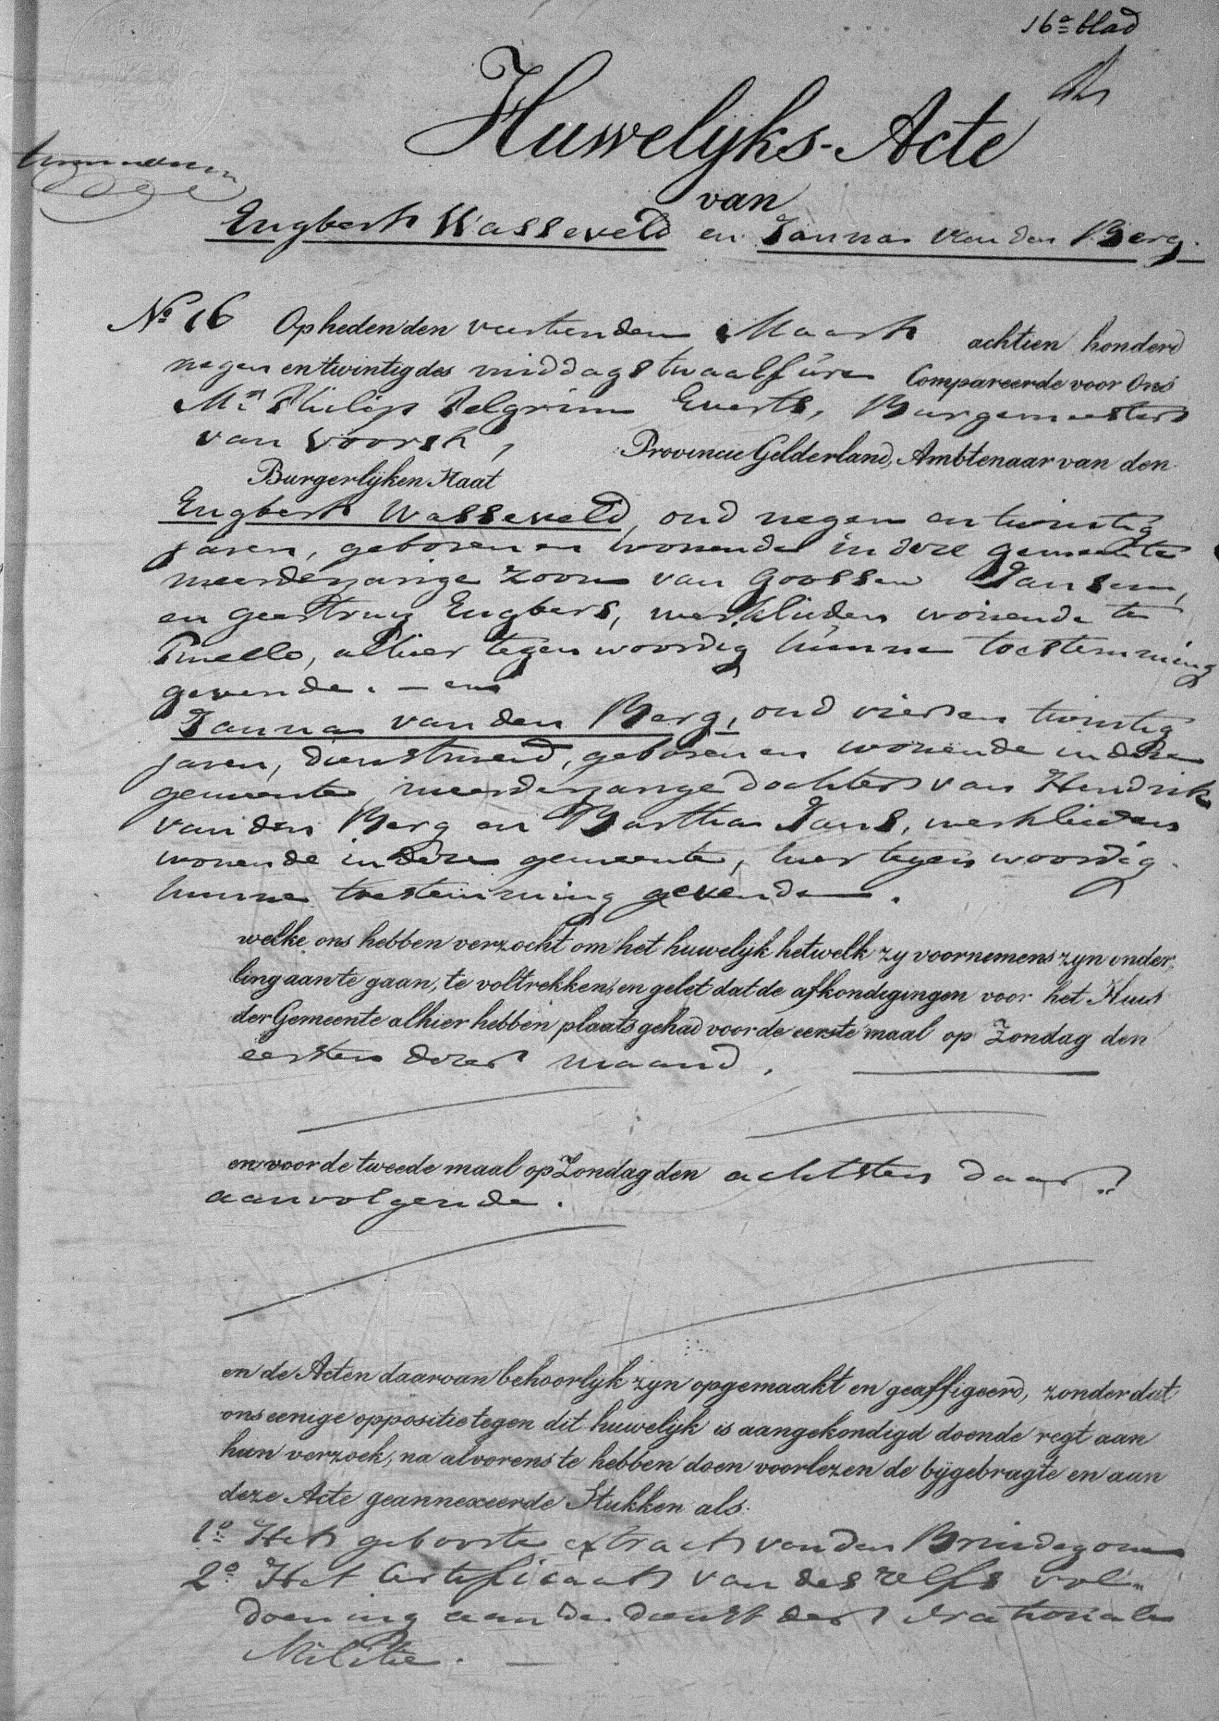 16e blad
Huwelijks-Acte
van
Engbert Wasseveld en Janna van den Berg.
No 16 Op heden den veertienden Maart achtien honderd
negen en twintig des middags twaalf uren Compareerde voor Ons
Mr Philip Pelgrim Everts, Burgemeester
van Voorst, Provincie Gelderland, Ambtenaar van den
Burgerlijken Staat
Engbert Wasseveld, oud negen en twintig
jaren, geboren en wonende in deze gemeente
meerderjarige zoon van Goossen Jansen,
en Geertruy Engbers, werklieden wonende te
Twello, alhier tegenwoordig hunne toestemming
gevende. — en
Janna van den Berg, oud vier en twintig
jaren, dienstmeid, geboren en wonende in deze
gemeente meerderjarige dochter van Hendrik
van den Berg en Bartha Jans, werklieden
wonende in deze gemeente, hier tegenwoordig
hunne toestemming gevende.
welke ons hebben verzocht om het huwelijk hetwelk zy voornemens zyn onder,
ling aan te gaan, te voltrekken, en gelet dat de afkondigingen voor het Huis
der Gemeente alhier hebben plaats gehad voor de eerste maal op Zondag den
eersten dezer maand,
en voor de tweede maal op Zondag den achtsten daar
aanvolgende.
en de Acten daarvan behoorlyk zyn opgemaakt en geaffigeerd, zonder dat
ons eenige oppositie tegen dit huwelijk is aangekondigd doende regt aan
hun verzoek, na alvorens te hebben doen voorlezen de bygebragte en aan
deze Acte geannexeerde Stukken als
1o Het geboorte extract van den Bruidegom
2o Het Certificaat van deszelfs vol
doening aan de dienst der Nationale
Militie. —